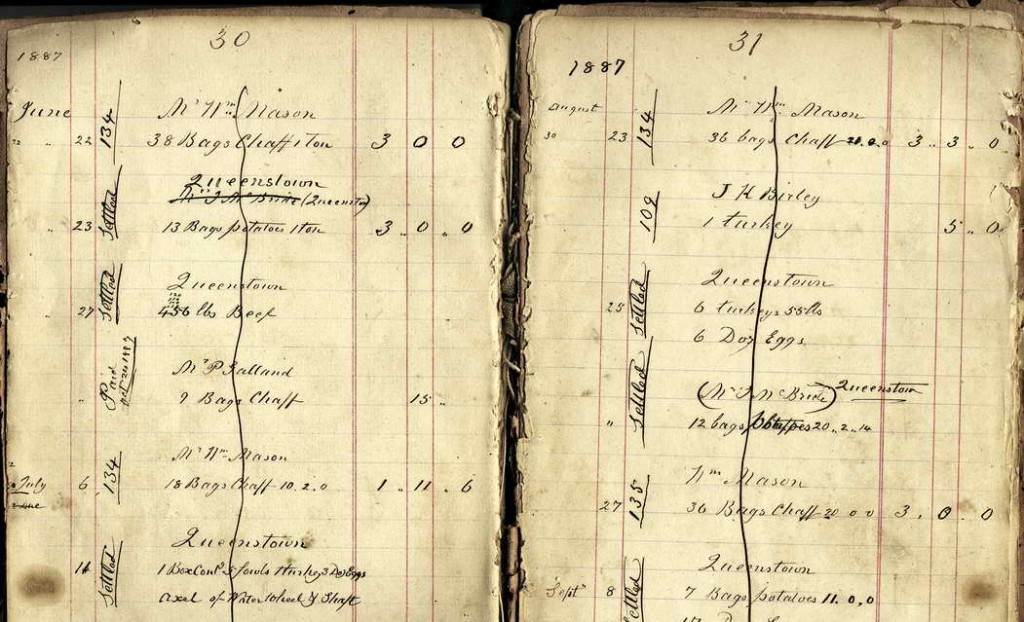 30
1887
June
Mr Wm Mason
" " 22 134 38 Bags Chaff 1 ton 3 0 0
Queenstown
Mr J McBride (Queenstn)
" 23 Settled 13 Bags potatoes 1 ton 3 . 0 . 0
Queenstown
" 27 Settled 456 lbs Beef
Mr P Galland
" Paid Oct 24 1887 7 Bags Chaff 15 "
Mr Wm Mason
July 6 134 18 Bags Chaff 10.2.0 1 .. 11 . 6
June
Queenstown
11 Settled 1 Box Cont 5 fowls 1 turkey 3 Doz Eggs
Axel of Water wheel & Shaft
31
1887
August Mr Wm Mason
30 23 134 36 bags Chaff 21.0.0 3 .. 3 . 0
J K Birley
109 1 turkey 5 .. 0
Queenstown
25 Settled 6 turkeys 55 lbs
6 Doz Eggs
(Mr J McBride) Queenstown
" Settled 12 bags potatoes 20 .. 2 .. 14
Wm Mason
27 135 36 Bags Chaff 20 0 0 3 . 0 . 0
Queenstown
Sept 8 Settled 7 Bags potatoes 11. 0. 0